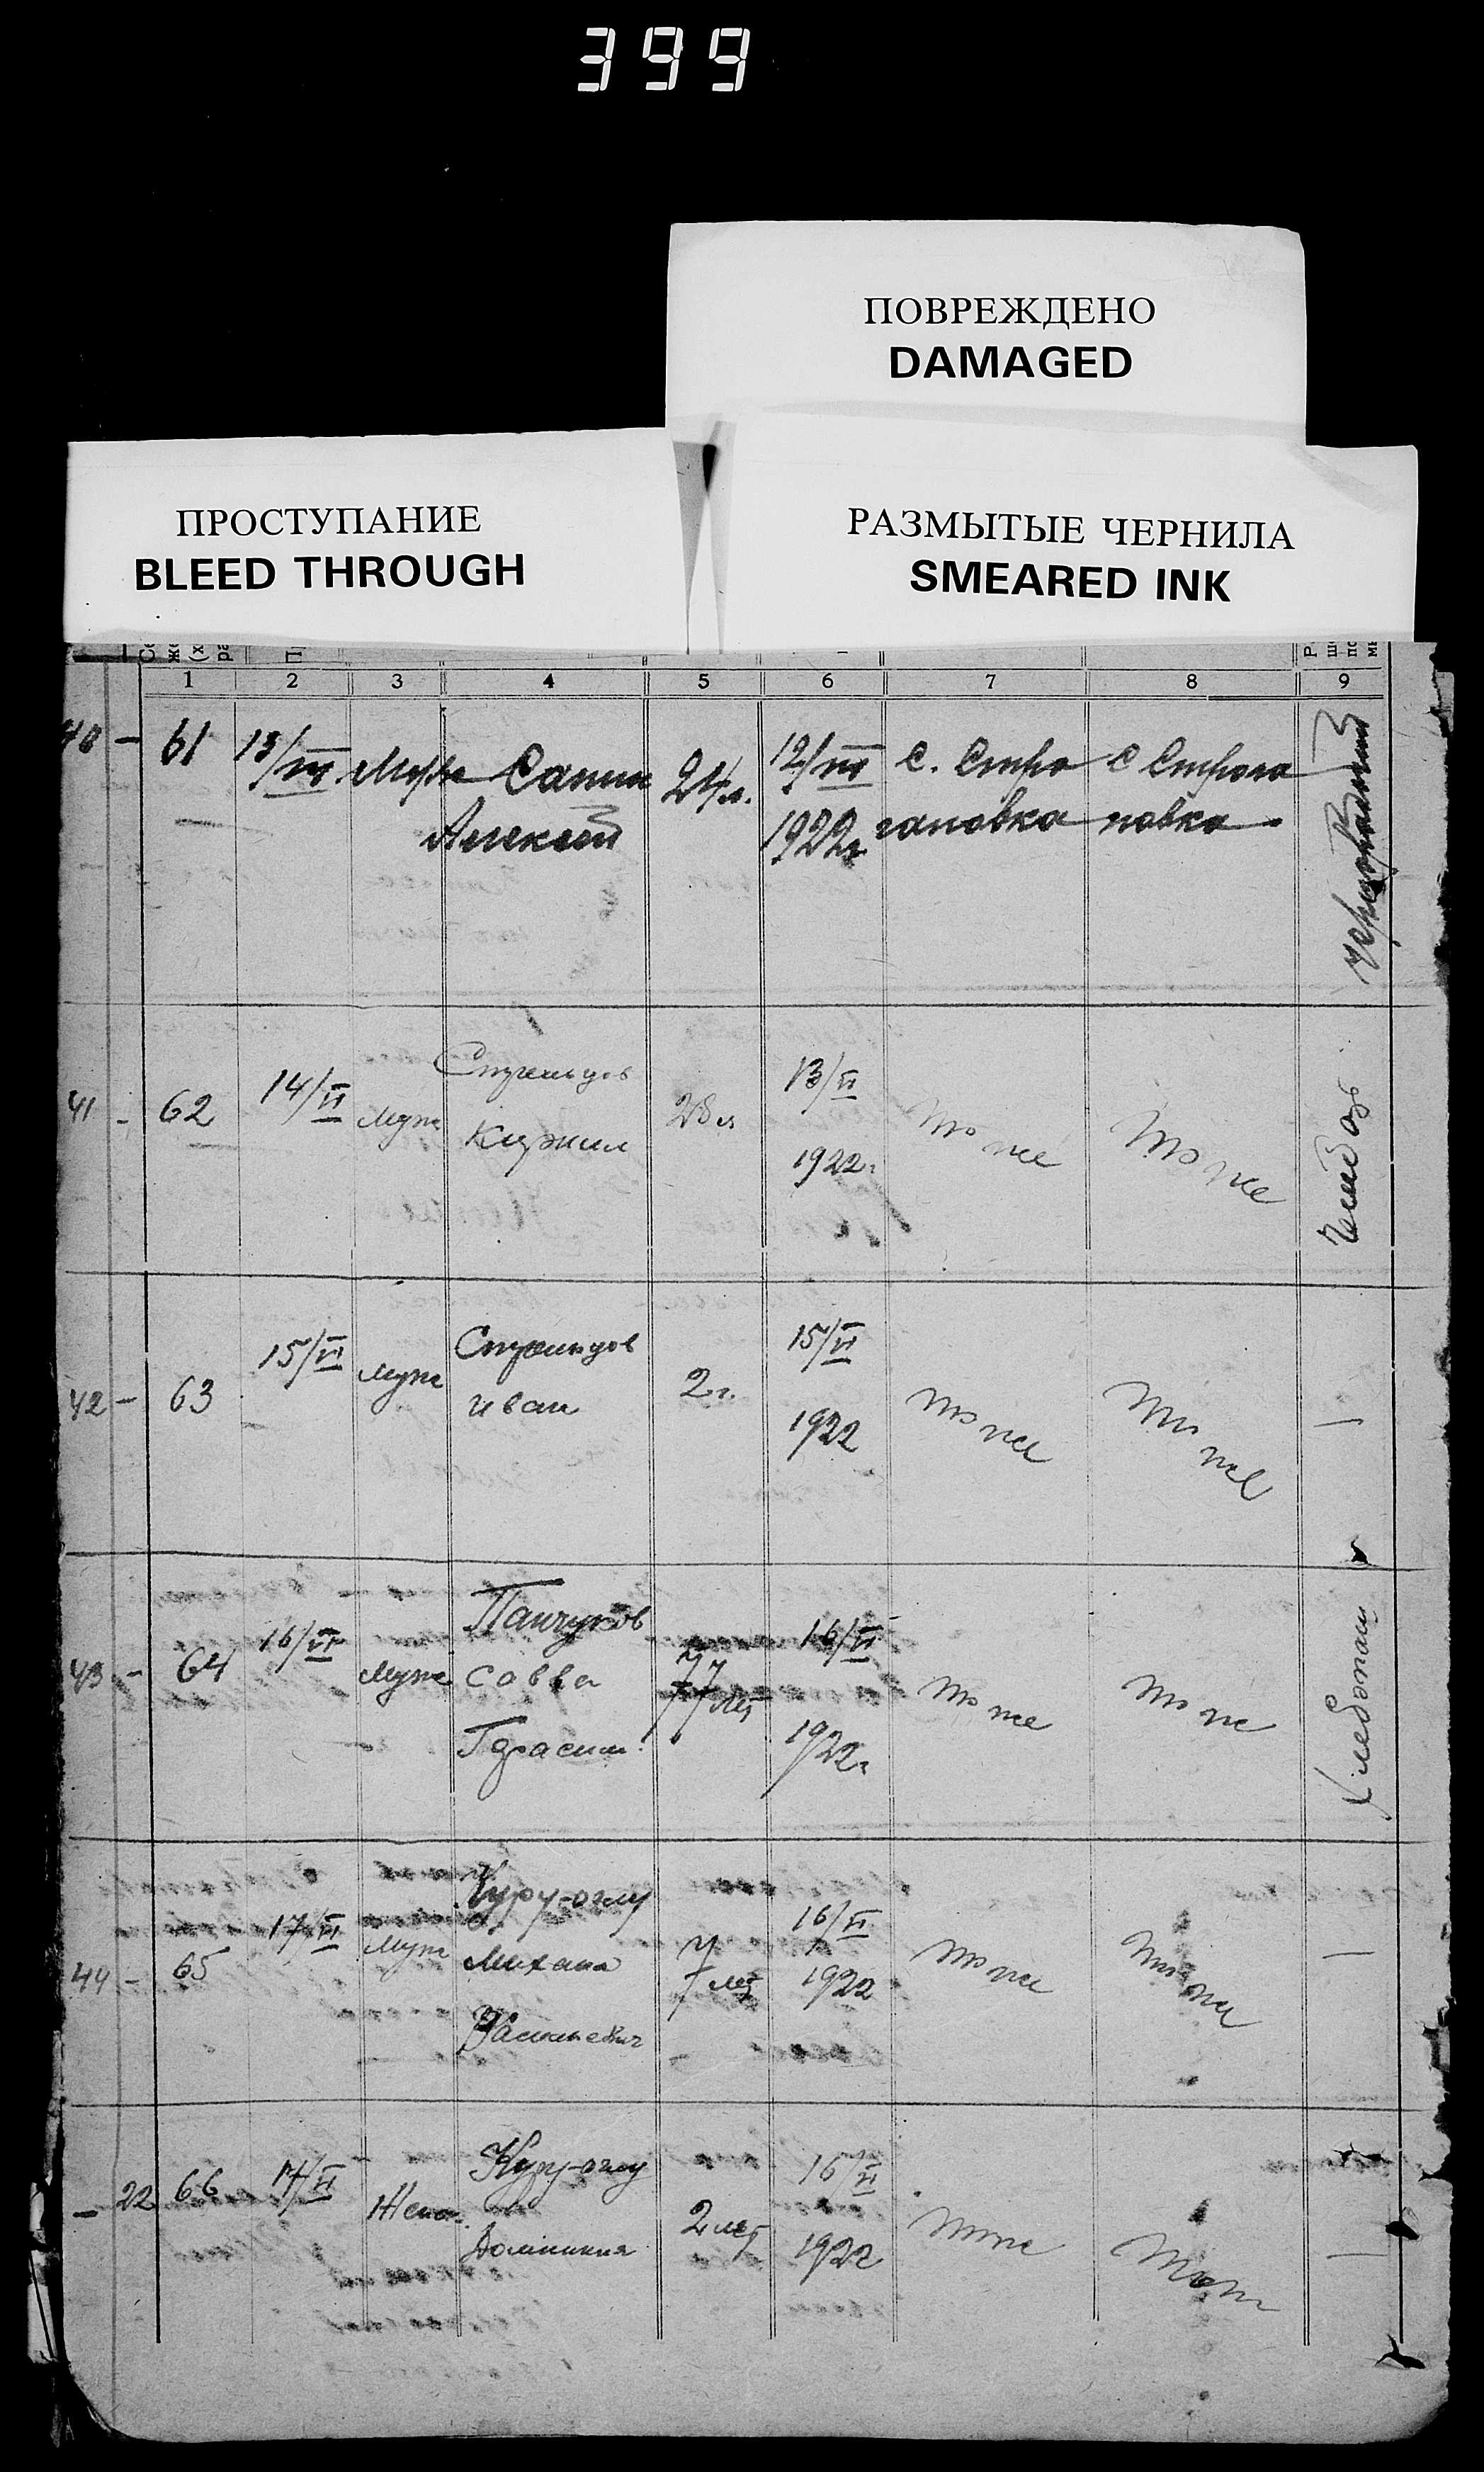 399
ПОВРЕЖДЕНО
DAMAGED
ПРОСТУПАНИЕ
BLEED THROUGH
РАЗМЫТЫЕ ЧЕРНИЛА
SMEARED INK
1 2 3 4 5 6 7 8 9
40 - 61 13/VI Муж Сапин 24 л. 12/VI с. Стро с Строга
Алексей 1922г гановка новка
41 - 62 14/VI Муж 28 л 13/VI то же то же
Кирилл 1922г
42 - 63 15/VI муж 2 г. 15/VI то же то же —
Иван 1922
43 - 64 16/VI муж Панчуков 77 лет 16/VI то же то же
Савва 1922г
Герасим.
44 - 65 17/VI муж Куру-оглу 7 лет 16/VI то же то же —
Михаил 1922
- 22 66 17/VI Жен. Куру-оглу 2 лет 16/VI то же —
1922